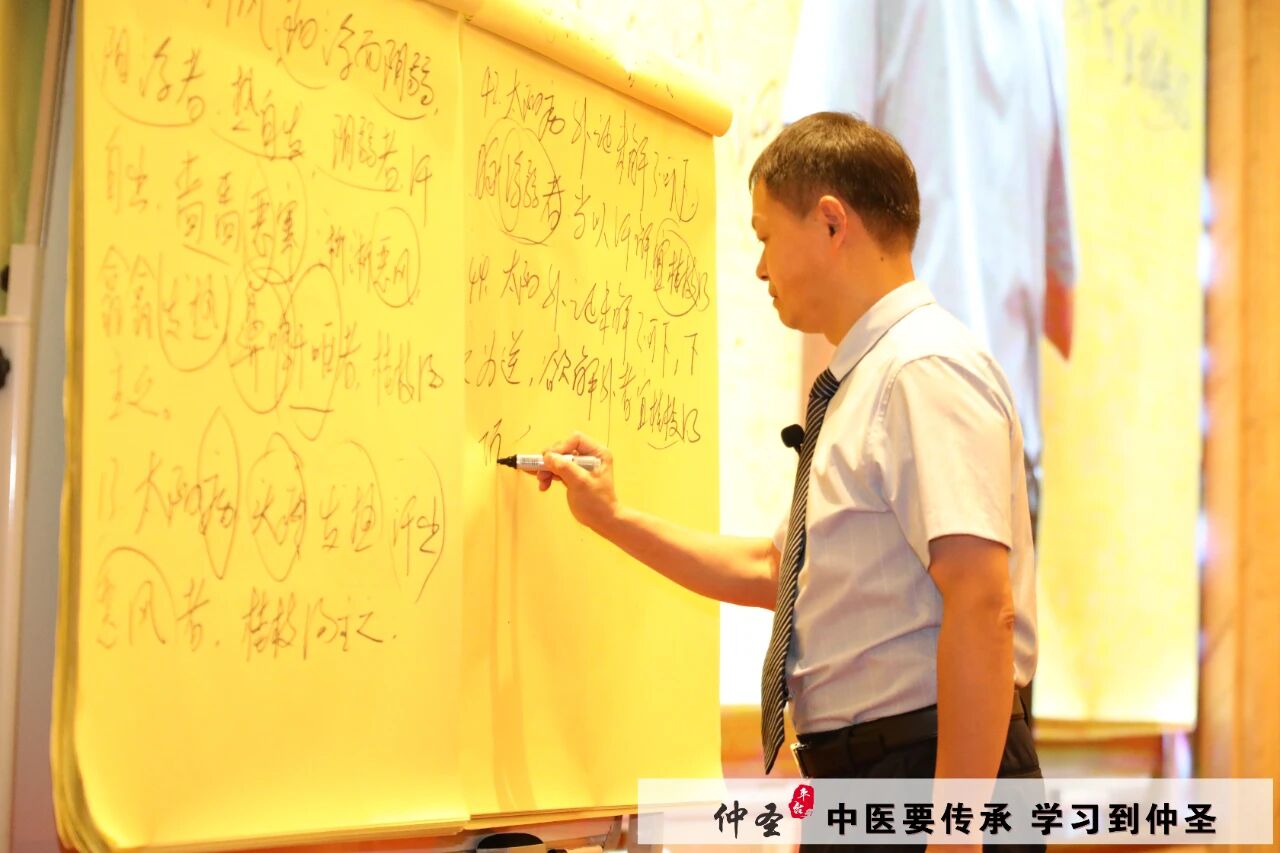 中风 而阴弱,
阳浮者,热自发,阴弱者汗
自出,啬啬恶寒,淅淅恶风
翕翕发热,鼻鸣干呕者,桂枝汤
主之。
13.太阳病,头痛发热汗出
恶风者,桂枝汤主之.
42.太阳病外证未解不可下
脉浮弱者当以汗解宜桂枝汤
44.太阳外证未解不可下,下
之为逆,欲解外者宜桂枝汤
仲圣 中医要传承 学习到仲圣